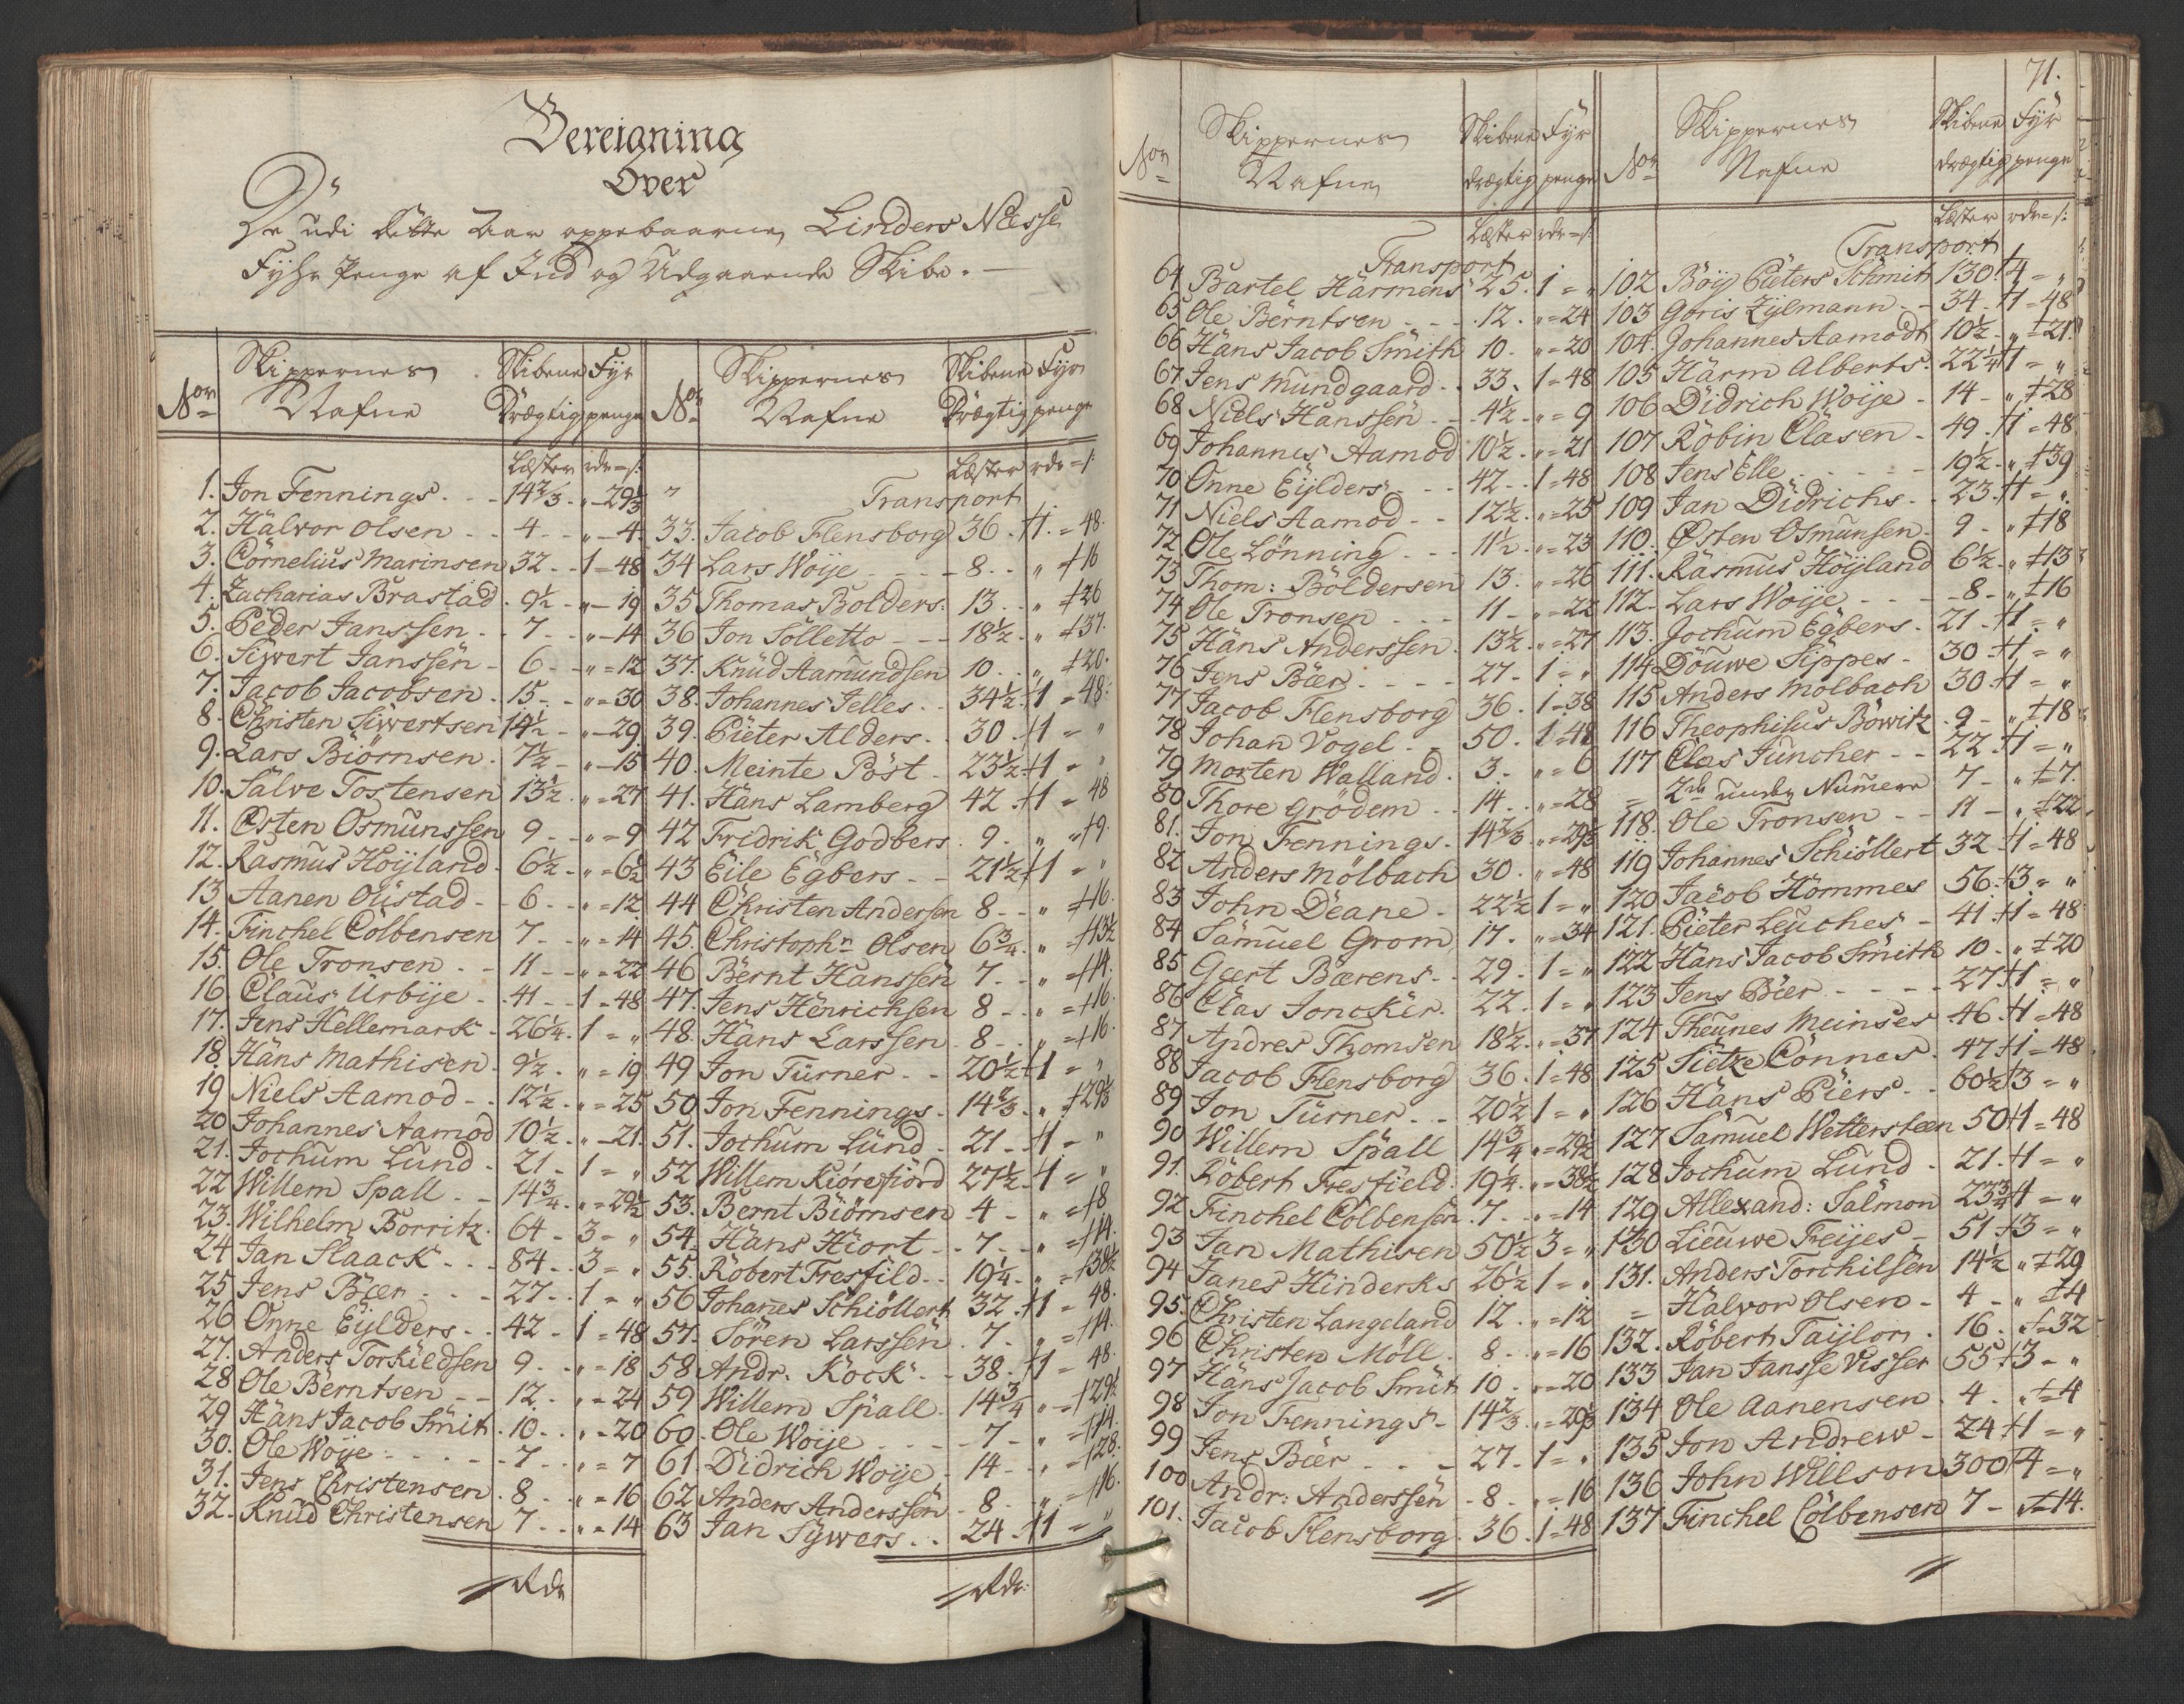 Bereigning
Over
De udi dette Aar oppebaarne Linders Nesse
Fyhr Penge af Ind og Udgaaende Skibe. —
Nor Skippernes Nafne Skibene Drægtig Fyr penge
Læster rdr = s:
1. Jon Fennings. 14 2/3 . „ – 29 1/3
2. Halvor Olsen 4 – „ – 4.
3. Cornelius Marinsen 32 – 1 = 48
4. Zacharias Brastad 9 1/2 – „ – 19
5. Peder Janssen 7 – „ – 14
6. Siwert Janssen 6 – „ = 12
7. Jacob Jacobsen 15 – „ = 30
8. Christen Siwertsen 14 1/2 – „ – 29
9. Lars Biörnsen 7 1/2 – „ – 15
10. Salve Tostensen 13 1/2 . „ = 27
11. Østen Osmunssen 9 – „ = 9
12. Rasmus Höyland 6 1/2 – „ = 6 1/2
13 Aanen Olistad 6 – „ = 12
14. Finchel Colbensen 7 – „ = 14
15. Ole Tronsen 11 – „ = 22
16. Claus Urbije 41 – 1 = 48
17. Jens Hellemark 26 1/4 . 1 = „
18. Hans Mathisen 9 1/2 . „ = 19
19 Niels Aamod 12 1/2 . „ = 25
20 Johannes Aamod 10 1/2 . „ – 21.
21. Jochum Lund 21 – 1 = „
22 Willem Spall 14 3/4 . „ = 29 1/2
23. Wilhelm Borritz 64 – 3 = „
24 Jan Slaack 84 . 3 = „
25 Jens Bær 27 . 1 = „
26 Onne Eylders 42 – 1 = 48
27. Anders Torkildsen 9 . „ = 18
28 Ole Berntsen 12 . „ = 24
29 Hans Jacob Smit 10 . „ = 20
30. Ole Woije 7 . „ = 7
31. Jens Christensen 8 . „ = 16
32. Knud Christensen 7 . „ = 14
Rdr
Nor Skippernes Nafne Skibene Drægtig Fyr penge
Læster rdr = s:
Transport
33. Jacob Flensborg 36 . 1 . = 48.
34 Lars Woije 8 . „ 16
35 Thomas Bolders: 13 . „ 26
36 Jon Solletto 18 1/2 . „ 37.
37. Knud Aamundsen 10 . „ 20.
38. Johannes Jelles 34 1/2 . 1 = 48.
39. Pieter Alders 30 . 1 = „
40. Meinte Post 23 1/2 . 1 = „
41. Hans Lamberg 42 . 1 = 48
42 Fridrik Godbers 9 . „ 9.
43 Eile Egbers 21 1/2 . 1 = „
44 Christen Andersen 8 . „ 16.
45. Christophn Olsen 6 3/4 . „ 13 1/2
46 Bernt Hanssen 7 . „ 14.
47. Jens Henrichsen 8 . „ = 16.
48. Hans Larssen 8 . „ = 16.
49 Jon Türner 20 1/2 1 = „
50 Jon Fennings 14 2/3 . „ 29 1/3
51. Jochum Lund 21 . 1 – „
52 Willem Kiörefiord 27 1/2 . 1 = „
53. Bernt Biörnsen 4 – „ = 8
54. Hans Hiort 7 . „ = 14.
55. Robert Fresfild 19 1/4 . „ = 38 1/2
56 Johanes Schiöllert 32 . 1 = 48.
57. Sören Larssen 7 . „ = 14.
58 Andr. Kock 38 . 1 = 48
59 Willem Spall 14 3/4 „ = 29 1/2
60. Ole Woije 7 – „ = 14.
61. Didrich Woije 14 . „ = 28.
62 Anders Anderssen 8 . „ = 16.
63 Jan Sywers 24 . 1 = „
Rdr:
71.
Nor Skippernes Nafne Skibene drægtig Fyr penge
Læster rdr = s:
Transport
64 Bartel Harmens 25 . 1 = „
65 Ole Berntsen 12 . „ = 24
66 Hans Jacob Smith 10 . „ = 20
67. Jens Mundgaard 33 . 1 = 48
68 Niels Hanssen 4 1/2 . „ = 9
69 Johannes Aamod 10 1/2 . „ = 21
70 Onne Eylders 42 . 1 = 48
71 Niels Aamod 12 1/2 . „ = 25
72 Ole Lönning 11 1/2 . „ = 23
73 Thom: Boldersen 13 . „ = 26
74 Ole Tronsen 11 – „ = 22
75 Hans Anderssen 13 1/2 . „ = 27
76 Jens Bær 27 – 1 = „
77 Jacob Flensborg 36 . 1 = 38
78 Johan Vogel 50 . 1 = 48
79 Morten Walland 3 . „ = 6
80 Thore Grödem 14 . „ = 28
81. Jon Fennings 14 2/3 . „ = 29 1/3
82 Anders Mölbach 30 . „ = 48
83 John Deane 22 1/2 1 = „
84 Samuel Grom 17 . „ = 34
85 Geert Bærens 29 . 1 = „
86 Clas Joncker 22 . 1 = „
87 Andres Thomsen 18 1/2 . „ = 37
88 Jacob Flensborg 36 . 1 = 48
89 Jon Türner 20 1/2 1 = „
90 Willem Spall 14 3/4 „ = 29 1/2
91. Robert Fresfield 19 1/4 . „ = 38 1/2
92 Finchel Colbensen 7 . „ = 14
93 Jan Mathisen 50 1/2 3 = „
94 Janes Hinderks 26 1/2 1 = „
95. Christen Langeland 12 . „ = 12
96 Christen Möll 8 . „ = 16
97 Hans Jacob Smit 10 . „ = 20
98 Jon Fennings 14 2/3 . „ = 29 1/3
99 Jens Bær 27 . 1 = „
100 Andr: Anderssen 8 . „ = 16
101. Jacob Flensborg 36 . 1 = 48
Nor Skippernes Nafne Skibene drægtig Fyr penge
Læster rdr = s:
Transport
102 Böy Pieters Schmidt 130 . 4 = „
103 Goris Zylmann 34 . 1 = 48
104. Johannes Aamodt 10 1/2 . „ = 21
105 Harm Alberts 22 1/4 1 = „
106 Didrich Woije 14 – „ = 28
107 Robin Clasen 49 . 1 = 48
108 Jens Elle 19 1/2 . „ = 39
109 Jan Didrichs 23 . 1 = „
110. Østen Osmunsen 9 . „ = 18
111. Rasmus Höyland 6 1/2 . „ = 13
112. Lars Woije 8 . „ = 16
113. Jochum Egbers 21 . 1 = „
114 Douwe Sippes 30 . 1 = „
115 Anders Molbach 30 . 1 = „
116 Theophilus Böwitz 9 . „ = 18
117 Clas Juncher 22 . 1 = „
= 2de under Numere 7 – „ = 7.
118. Ole Tronsen 11 – „ = 22
119 Johannes Schiöllert 32 . 1 = 48
120 Jacob Hommes 56 . 3 = „
121. Pieter Leuches 41 . 1 = 48
122 Hans Jacob Smith 10 . „ = 20
123 Jens Bær 27 . 1 = „
124 Theunes Meinses 46 . 1 = 48
125 Sietze Connes 47 . 1 = 48
126 Hans Piers 60 1/2 3 = „
127 Samuel Wettersteen 50 1 = 48
128 Jochum Lund 21 . 1 = „
129 Allexand: Salmon 23 3/4 1 = „
130 Lieuwe Freijes 51 . 3 = „
131. Anders Torchilsen 14 1/2 „ = 29
= Halvor Olsen 4 – „ = 4
132. Robert Taijlor 16 . „ = 32
133 Jan Jansse Visser 55 . 3 – „
134 Ole Aanensen 4 . „ = 4
135. Jon Andrew 24 . 1 = „
136 John Willson 300 4 = „
137 Finchel Colbensen 7 – „ = 14.